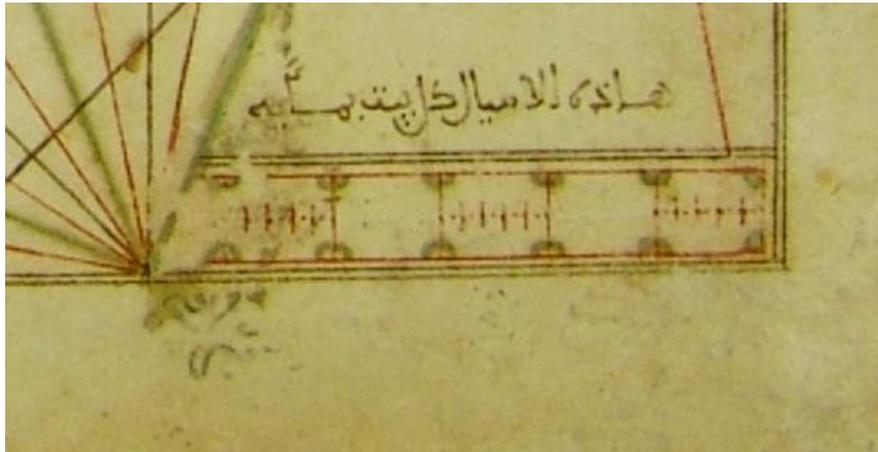 هاذه الاميال كل بيت بمايه